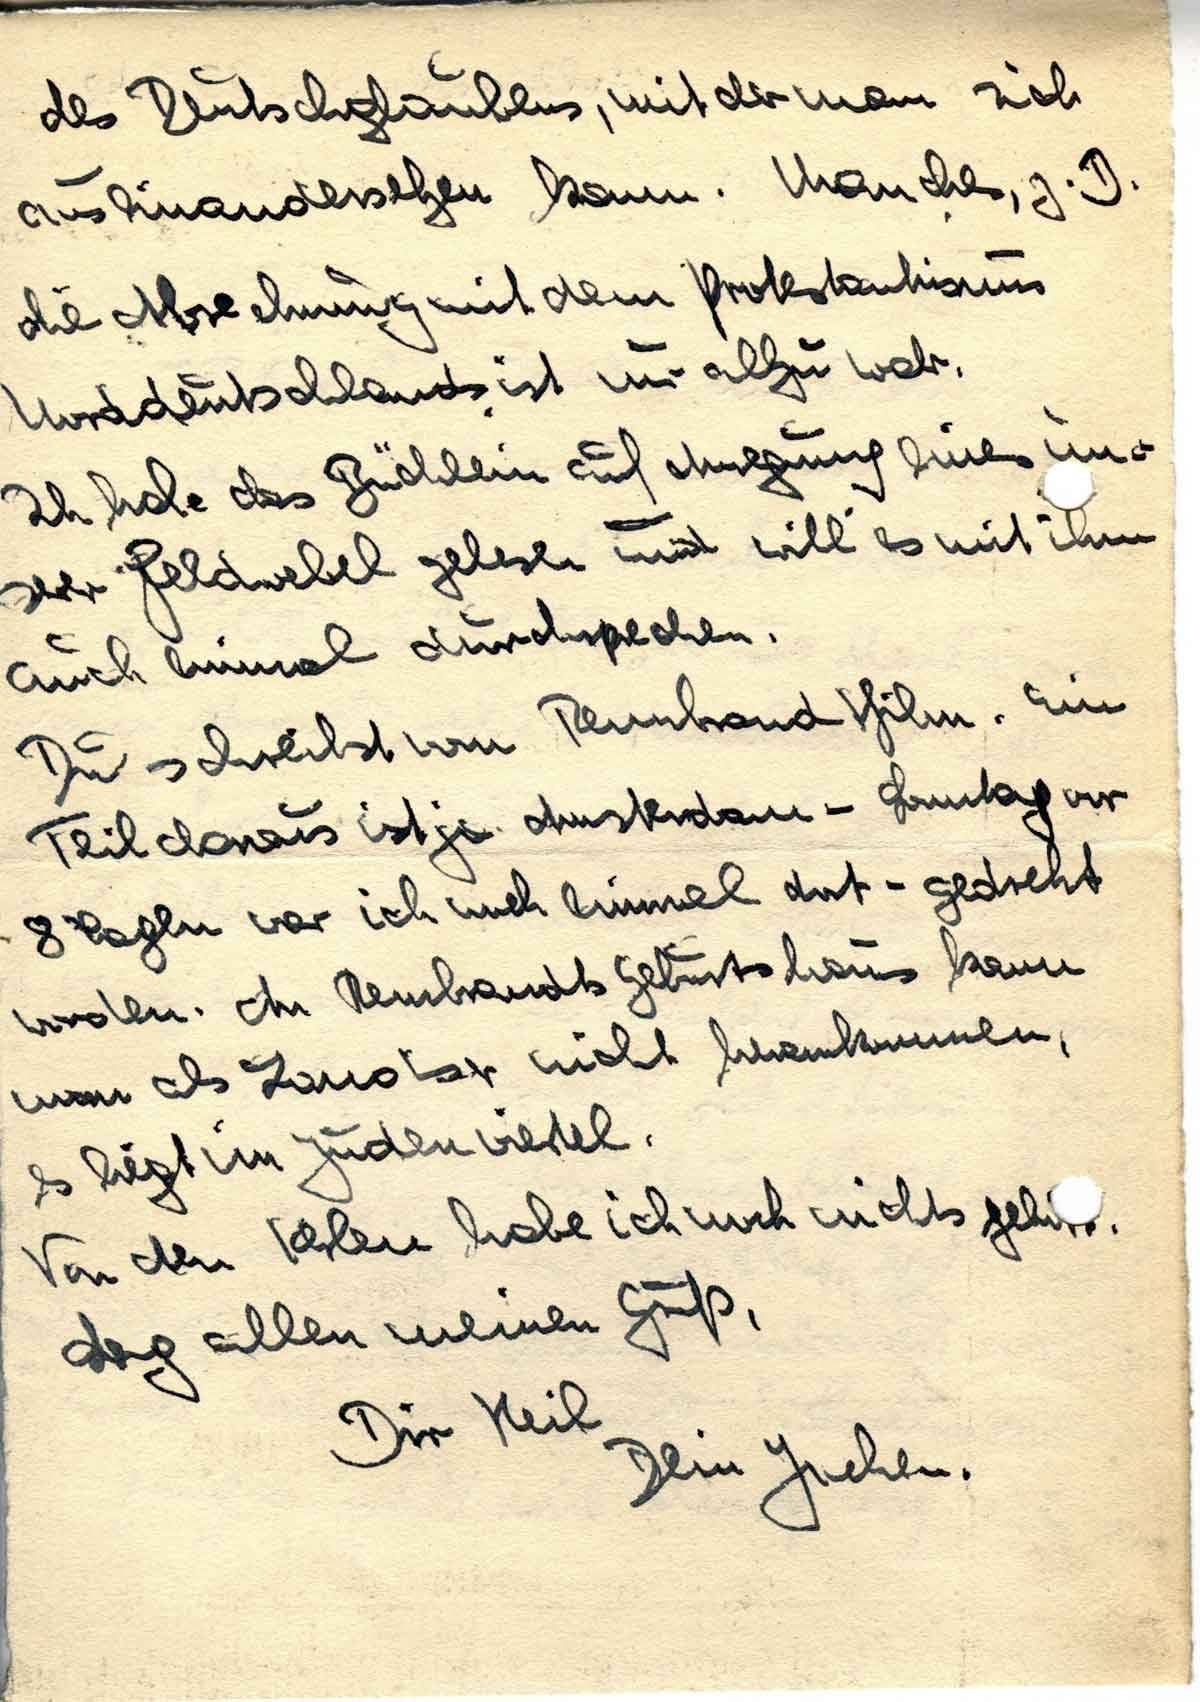 des Deutschglaubens, mit der man sich
auseinandersetzen kann. Manches, z. B.
die Abrechnung mit dem Protestantismus
Norddeutschlands, ist nur allzu wahr.
Ich habe das Büchlein auf Anregung eines un-
serer Feldwebel gelesen und will es mit ihm
auch einmal durchsprechen.
Du schreibst vom Rembrandtfilm. Ein
Teil daraus ist ja Amsterdam - Sonntag vor
8 Tagen war ich noch einmal dort - gedreht
worden. An Rembrandts Geburtshaus kann
man als Landser nicht herankommen,
es liegt im Judenviertel.
Von den habe ich noch nichts gehört.
Sag allen meinen Gruß,
Dir Heil
Dein Jochen.